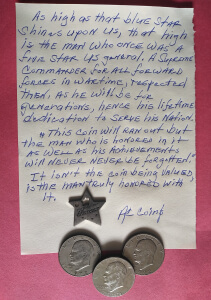 As high as that blue STAR
Shines upon US, that high
is the man who once was a
five STAR US general, a Supreme
Commander for all forward
forces in wartime, respected
then, as he will be for
generations, hence his lifetime
dedication to serve his Nation.
"This coin will ran out but
the man who is honored in it
as well as his achievements
will never never be forgotten."
It isn't the coin being valued,
is the man truly honored with
it.